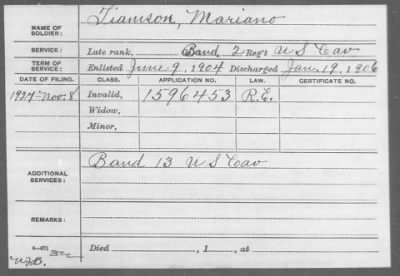 NAME OF SOLDIER: Tiamson, Mariano
SERVICE: Late rank, Band 2 Reg't U S Cav
TERM OF SERVICE: Enlisted June 9, 1904 Discharged Jan. 19, 1906
DATE OF FILING. CLASS. APPLICATION NO. LAW. CERTIFICATE NO.
1927-Nov. 8 Invalid, 1596453 R.E.
Widow,
Minor,
ADDITIONAL SERVICES: Band 13 U S Cav
REMARKS:
Died , 1 , at